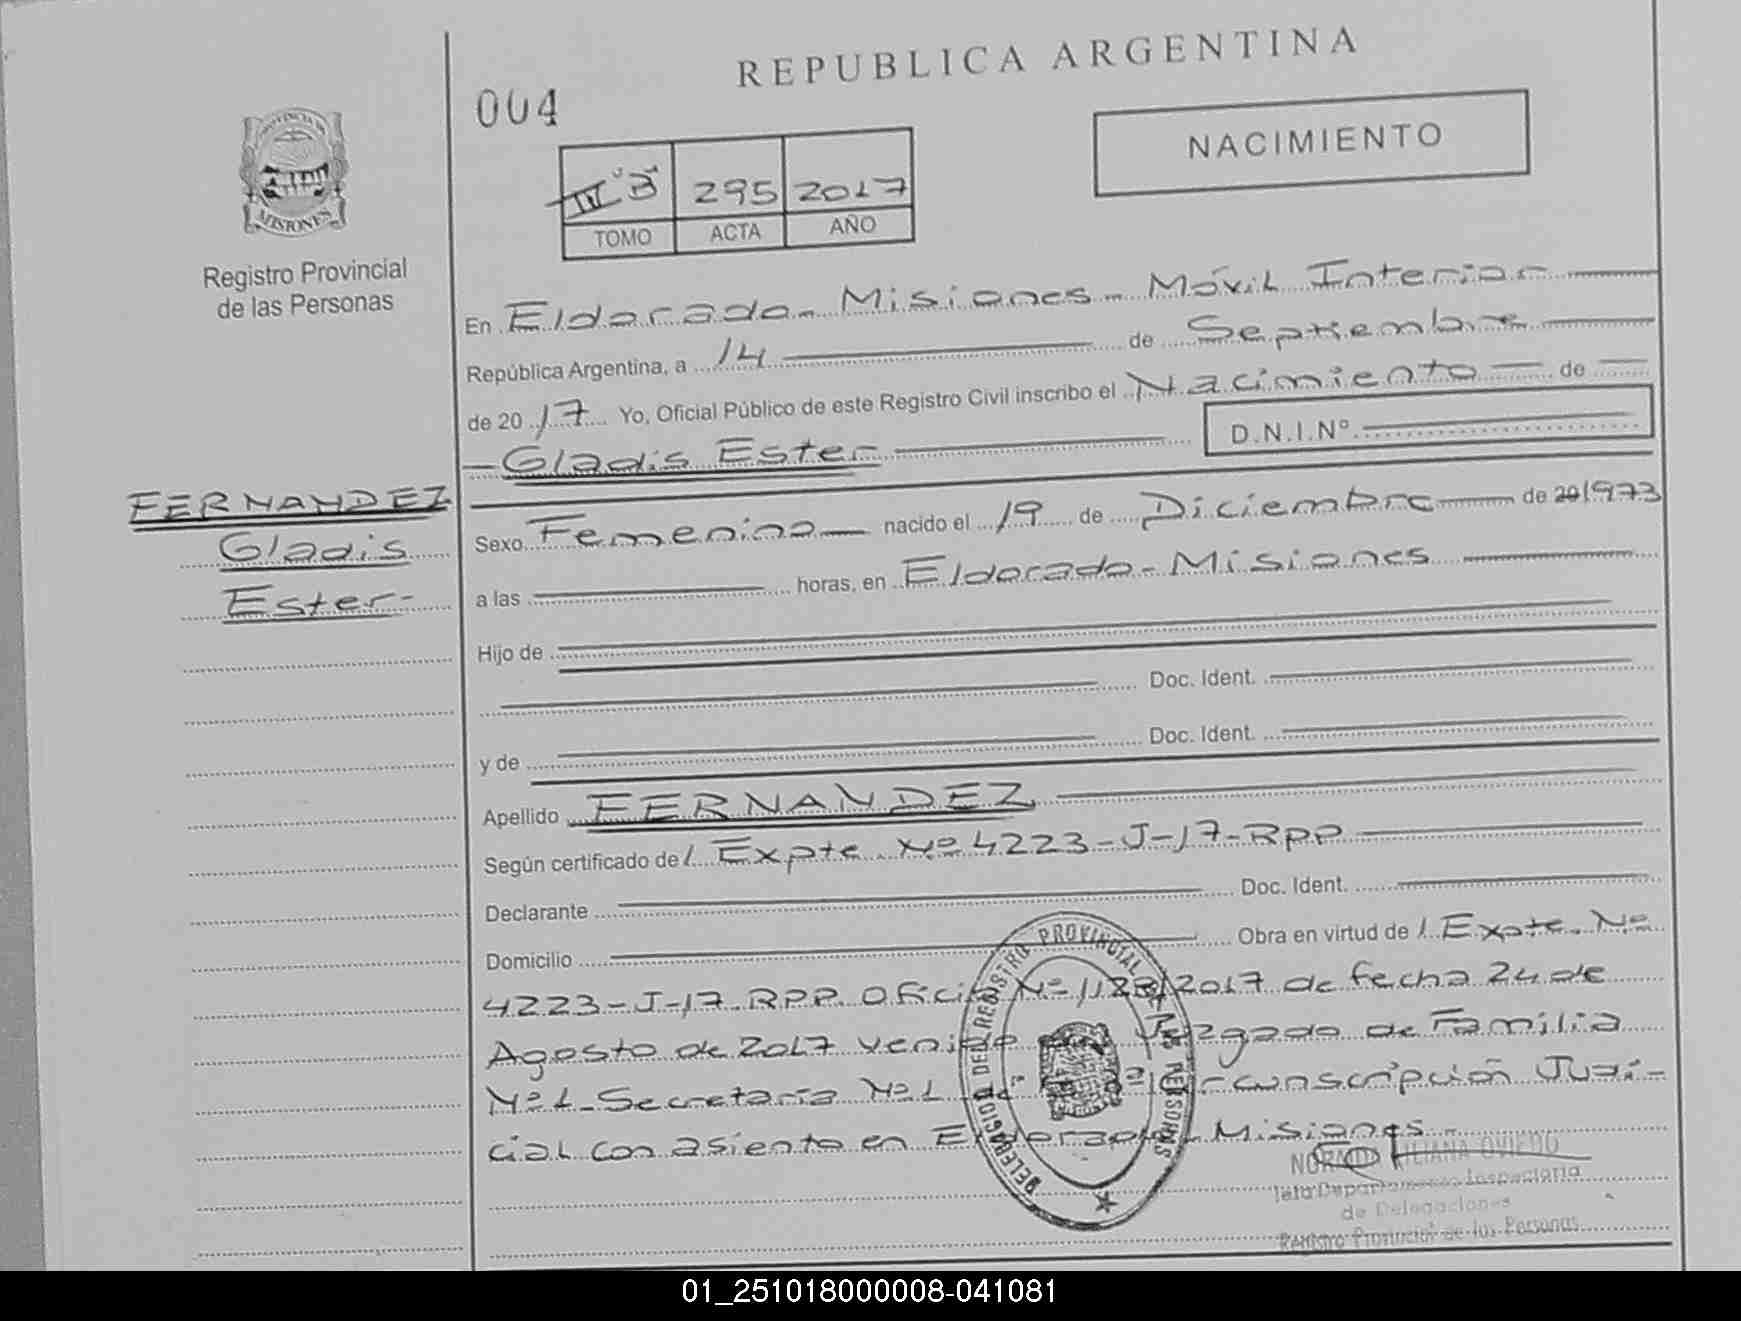 REPUBLICA ARGENTINA
004
NACIMIENTO
PROVINCIA DE
MISIONES
Registro Provincial
de las Personas
III "B" 295 2017
TOMO ACTA AÑO
En Eldorado - Misiones - Móvil Interior
República Argentina, a 14 de Septiembre
de 20 17 Yo, Oficial Público de este Registro Civil inscribo el Nacimiento de
Gladis Ester D.N.I.Nº
FERNANDEZ
Gladis
Ester-
Sexo Femenino nacido el 19 de Diciembre de 20 1973
a las horas, en Eldorado - Misiones
Hijo de
Doc. Ident.
y de Doc. Ident.
Apellido FERNANDEZ
Según certificado de / Expte. Nº 4223-J-17-RPP
Declarante Doc. Ident.
Domicilio Obra en virtud de / Expte. Nº
4223-J-17 RPP Oficio Nº 2017 de fecha 24 de
Agosto de 2017 venido Juzgado de Familia
Nº1 - Secretaría Nº1 Circunscripción Judi-
cial con asiento en Eldorado - Misiones -
DELEGACIO DEL REGISTRO PROVINCIAL DE LAS PERSONAS
NORMA LILIANA OVIEDO
Jefa Departamento Inspectoria
de Delegaciones
Registro Provincial de las Personas
01_251018000008-041081